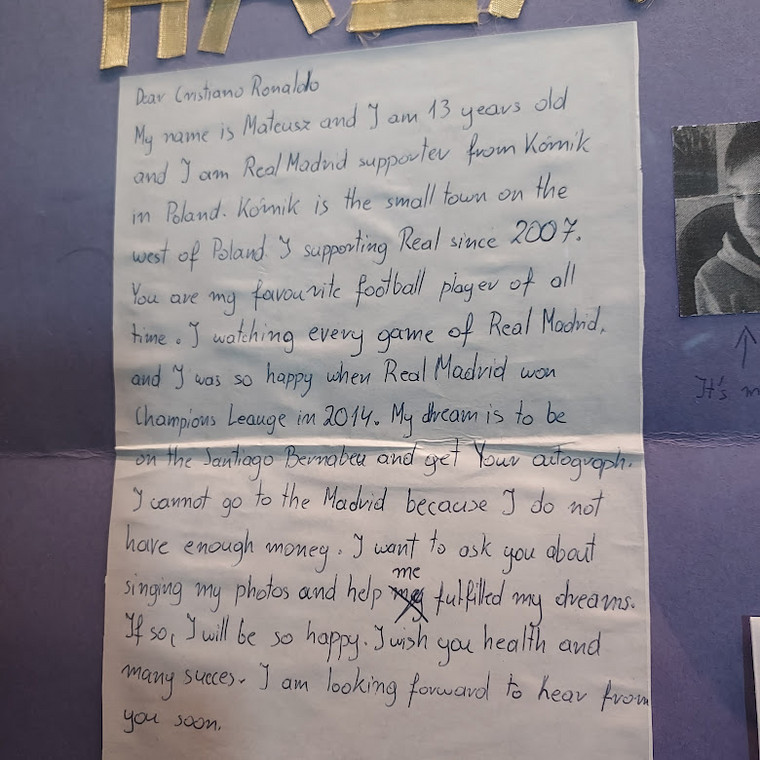 Dear Cristiano Ronaldo
My name is Mateusz and I am 13 years old
and I am Real Madrid supporter from Kórnik
in Poland. Kórnik is the small town on the
west of Poland. I supporting Real since 2007.
You are my favourite football player of all
time. I watching every game of Real Madrid,
and I was so happy when Real Madrid won
Champions Leauge in 2014. My dream is to be
on the Santiago Bernabeu and get Your autograph.
I cannot go to the Madrid because I do not
have enough money. I want to ask you about
singing my photos and help me fulfilled my dreams.
If so, I will be so happy. I wish you health and
many succes. I am looking forward to hear from
you soon.
It's